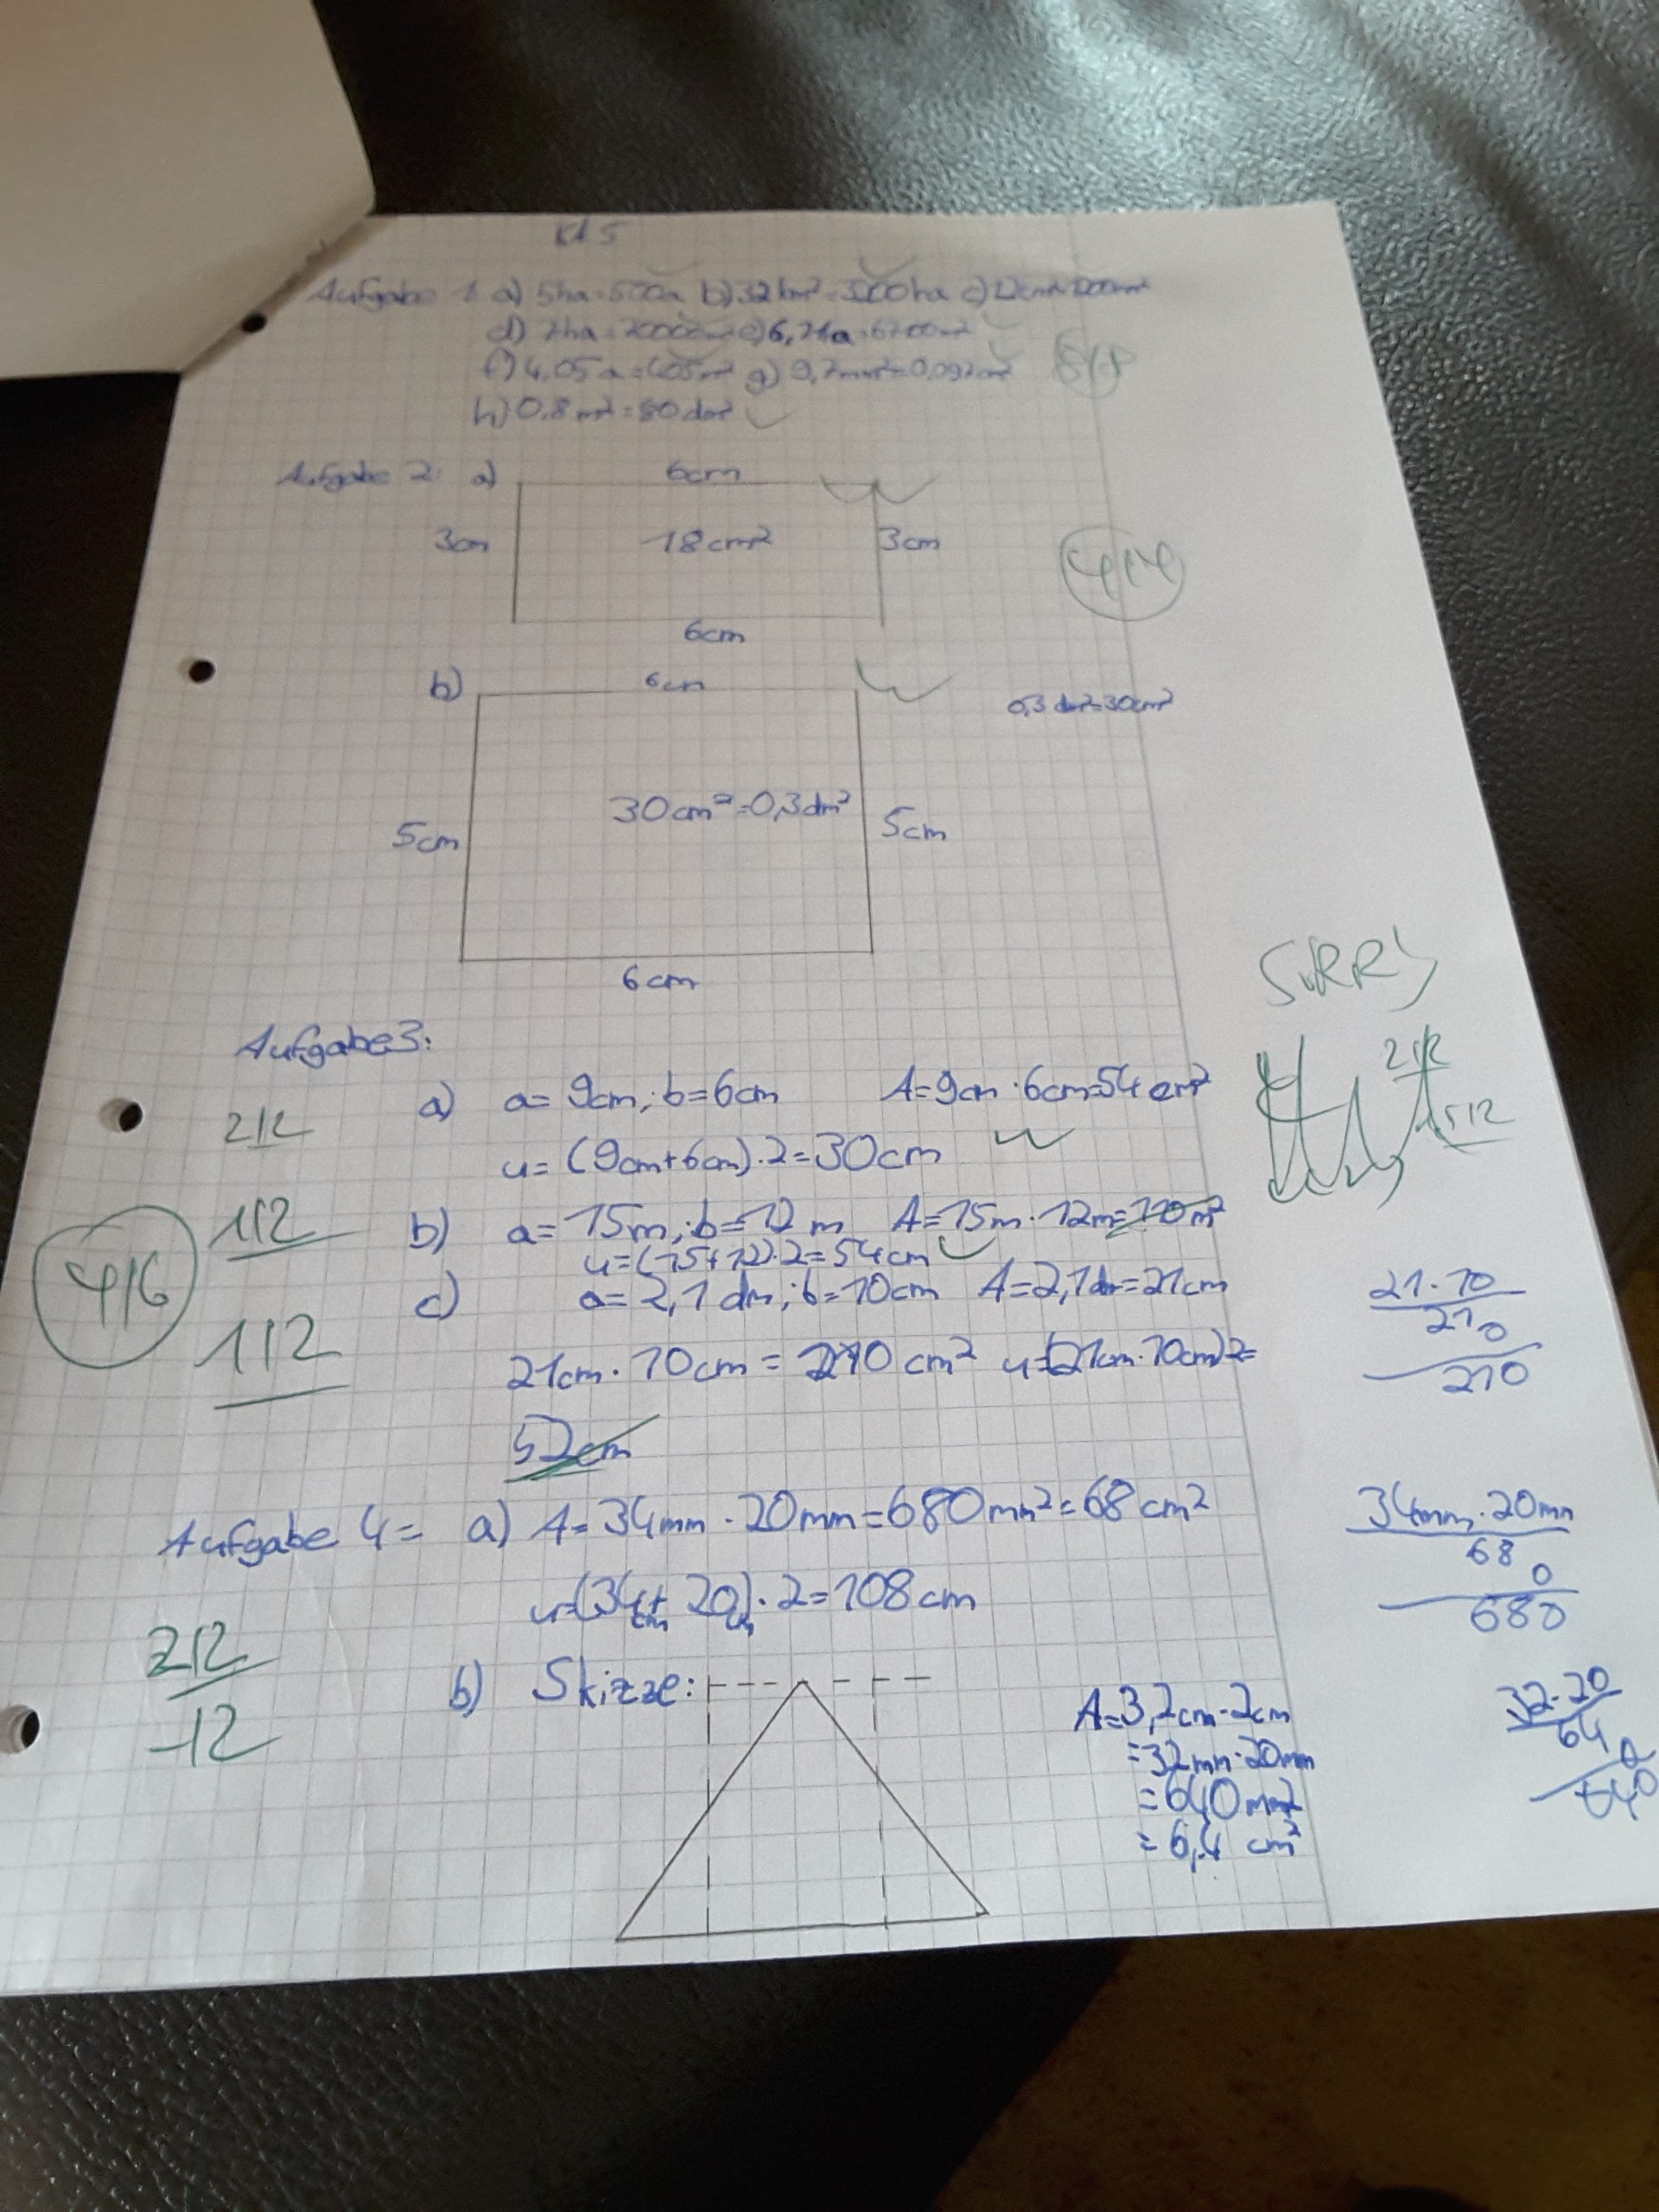 KA 5
Aufgabe 1: a) 5ha=500a b) 32km²=3200ha c) 12cm²=1200mm²
d) 2ha=20000m² e) 6,71a=
f) 4,05a=405m² g) 9,2mm²=0,092cm² 8/8
h) 0,8m²=80dm²
Aufgabe 2: a) 6cm
3cm 18cm² 3cm 4/4
6cm
b) 6cm 0,3dm²=30cm²
30cm²=0,3dm²
5cm 5cm
6cm
SORRY
Aufgabe 3:
a) a=9cm; b=6cm A=9cm·6cm=54cm² 2/2
2/2 u=(9cm+6cm)·2=30cm 1,5/2
1/2 b) a=15m; b=12m A=15m·12m=
4/6 u=(15+12)·2=54cm
c) a=2,1dm; b=10cm A=2,1dm=21cm 21·10
1/2 210
21cm·10cm=210cm² u=(21cm·10cm)2= 210
52cm
Aufgabe 4= a) A=34mm·20mm=680mm²=68cm² 34mm·20mm
68
0
u=(34cm+20cm)·2=108cm 680
2/2
b) Skizze: A=3,2cm·2cm 32·20
-/2 =32mm·20mm 64
=640mm² 0
=6,4 cm² 640